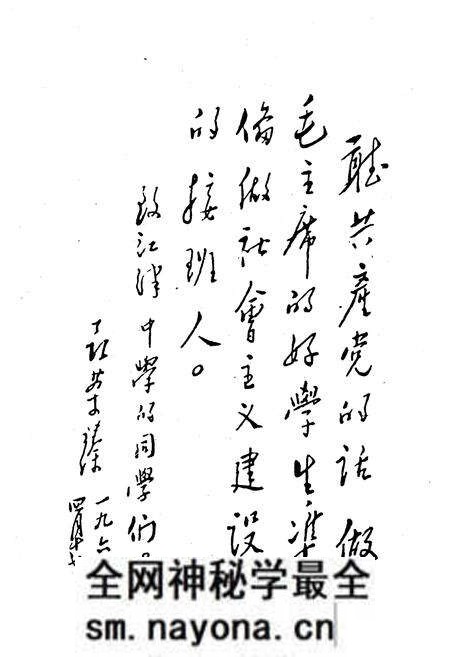 聽共產党的話做
毛主席的好學生準
備做社會主义建設
的接班人。
致江津中學的同學們。
聶荣臻 一九六
四月
全网神秘学最全
sm.nayona.cn